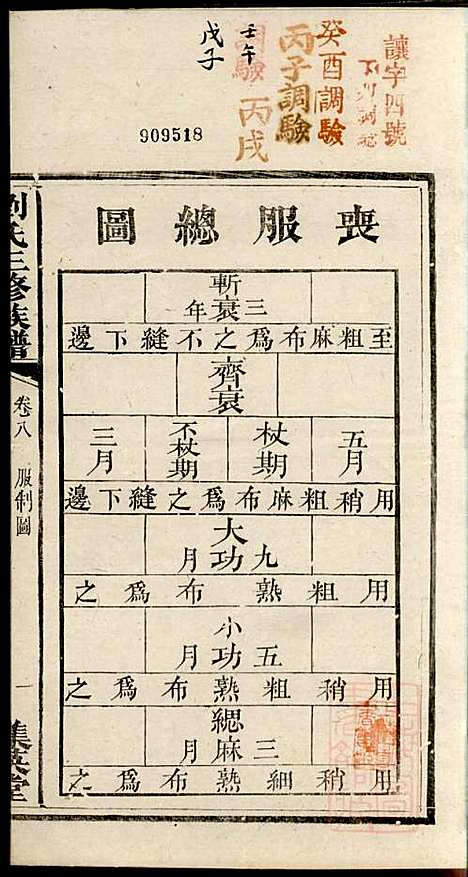 讓字四號
癸酉調驗
丙子調驗
調驗 丙戌
壬午
戊子
909518
喪服總圖
斬衰三年
至粗麻布為之不縫下邊
齊衰
五月
杖期
不杖期
三月
用稍粗麻布為之縫下邊
大功九月
用粗熟布為之
小功五月
用稍粗熟布為之
緦麻三月
用稍細熟布為之
劉氏三修族譜
卷八
服制圖
一
集英堂